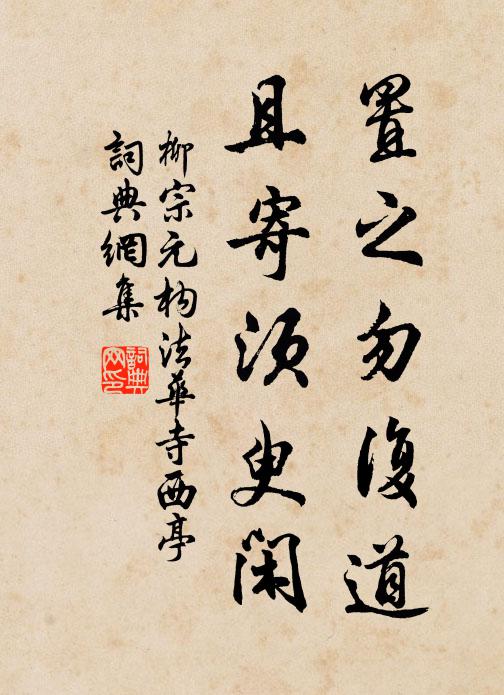 置之勿復道
且寄須臾閑
柳宗元构法華寺西亭
詞典網集
詞典
网印